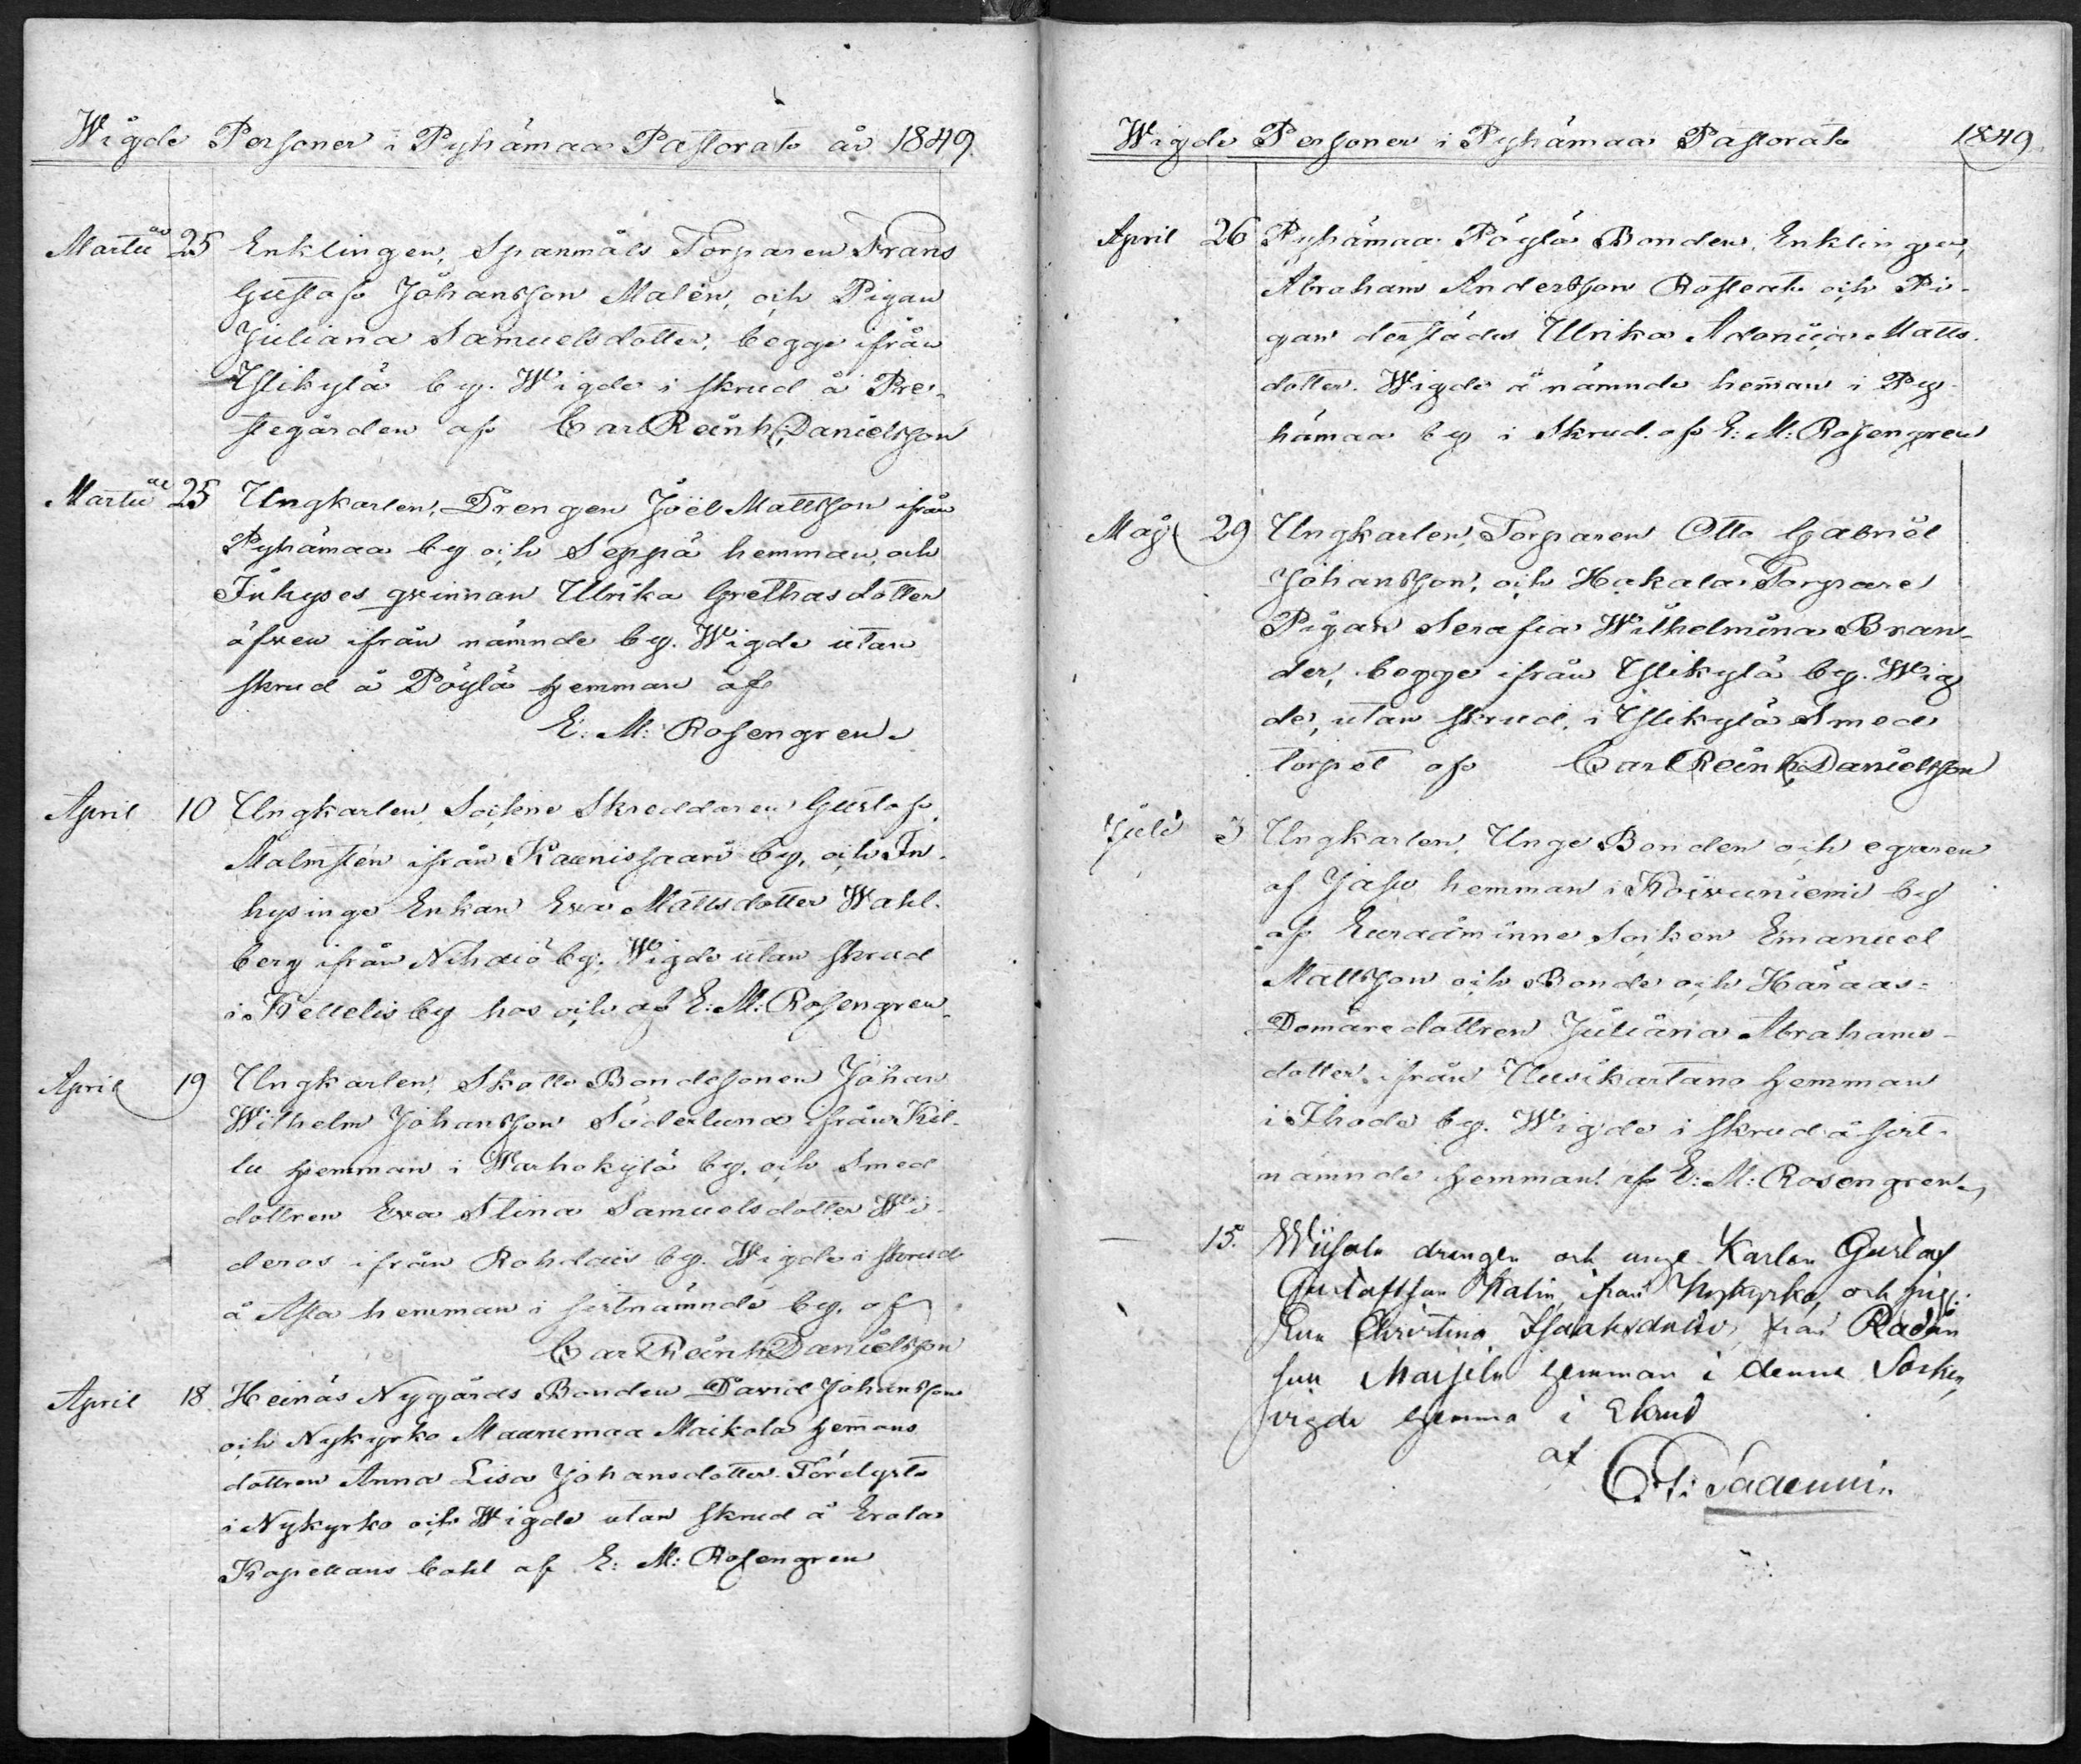 Wigde Personer i Pyhämaa Pastorat år 1849.
Martii 25 Enklingen, Spanmåls Torparen Frans
Gustaf Johansson Malèn, och Pigan
Juliana Samuelsdotter, begge ifrån
Yslikylä by. Wigde i skrud å Pre-
stegården af Carl Reinh: Danielsson
Martii 25 Ungkarlen, Drengen Joël Mattsson ifrån
Pyhämaa by och Seppä hemman, och
Inhyses qvinnan Ulrika Grethasdotter
äfven ifrån nämnde by. Wigde utan
skrud å Pöylä hemman af
E: M: Rosengren.
April 10 Ungkarlen, Sockne Skreddaren Gustaf
Malmstén ifrån Kaunissaari by, och In-
hysinge Enkan Eva Mattsdotter Wahl-
berg ifrån Nihdiö by. Wigde utan skrud
i Kettelis by hos och af E: M: Rosengren.
April 19 Ungkarlen, Skatte Bondesonen Johan
Wilhelm Johansson Söderlund ifrån Kil-
lu hemman i Warhokylä by, och Smed
dottren Eva Stina Samuelsdotter Wi-
deros ifrån Rohdais by. Wigde i skrud
å Asa hemman i sistnämnde by, af
Carl Reinh: Danielsson
April 18. Heinäs Nygårds Bonden David Johansson
och Nykyrko Maurumaa Maikola hemans
dottren Anna Lisa Johansdotter. Förelyste
i Nykyrko och Wigde utan skrud å Erola
Kapellans bohl af E: M: Rosengren
Wigde Personer i Pyhämaa Pastorat 1849
April 26 Pyhämaa Pöylä Bonden, Enklingen,
Abraham Andersson Rostedt och Pi-
gan derstädes Ulrika Adonia Matts-
dotter. Wigde å nämnde heman i Py-
hämaa by i Skrud. af E: M: Rosengren
Maji 29 Ungkarlen, Torparen Otto Gabriel
Johansson, och Hakala Torpare
Pigan Serafia Wilhelmina Bran-
der, begge ifrån Yslikylä by. Wig
de, utan skrud, i Yslikylä Smed
torpet af Carl Reinh: Danielsson
Juli 3 Ungkarlen, Unge Bonden och egaren
af Jasu hemman i Koivuniemi by
af Euraåminne Socken Emanuel
Mattsson och Bonde och Häraas-
Domare dottren Juliana Abrahams-
dotter ifrån Uusikartano hemman
i Ihode by. Wigde i skrud å sist-
nämnde hemman af E: M: Rosengren
15. drengen och unge Karlen Gustaf
Gustafsson ifrån Nykyrko, och pig:
Eva Christina Isaaksdotter, från
hemman i denne Socken,
vigde hemma i Skrud
af